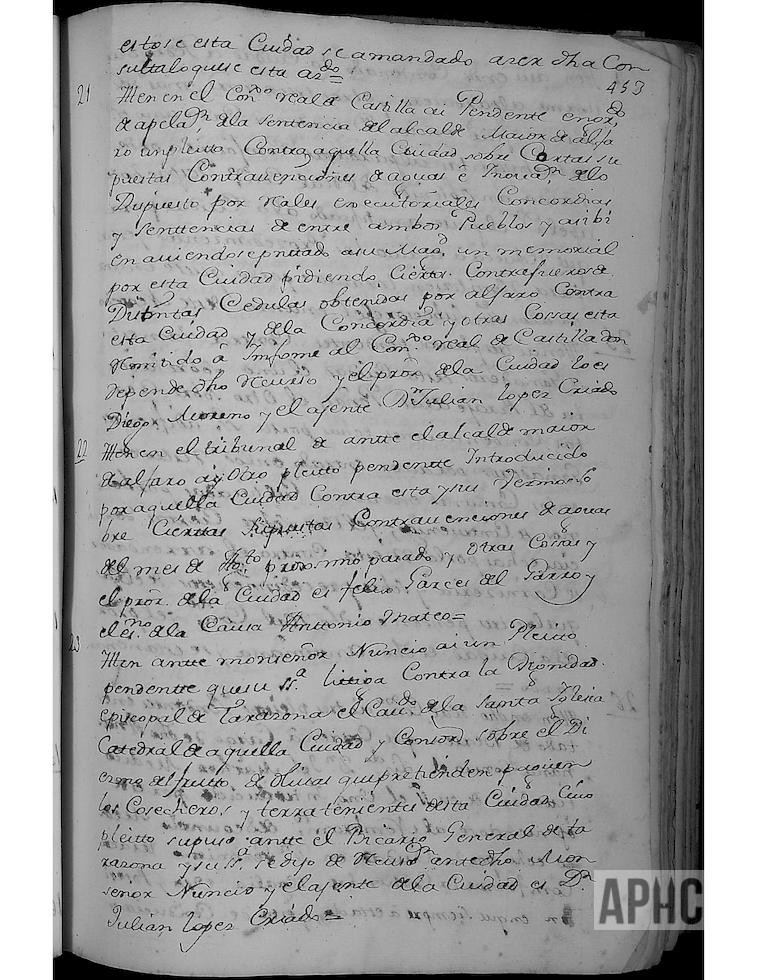 estose esta Ciudad se amandado azer dha Con
sultaloquese esta azdo =
453
21
Itten en el Conso. real de Castilla ai Pendente en ordo
de apelaon dela Sentencia del alcalde Maior de alfa
ro un pleitto Contra aquella Ciudad sobre Ciertas su
puestas Contrauenciones de aguas e Inoruaon delo
Dispuesto por Reales executoriales Concordias
y Senttencias de entre ambos Pueblos y asibi
en auiendose presentado asu Magd un memorial
por esta Ciudad pidiendo Ciertos Contrafueros
Distintas Cedulas obtenidas por alfaro Contra
esta Ciudad y dela Concordia y otras Cossas esta
Remitido a Informe al Conso real de Castilla don
depende dho Recurso y el pror. dela Ciudad lo es
Diego Moreno y el ajente Dn Julian lopez Criado
22
Itten en el tribunal de antte el alcalde maior
de alfaro ay Otro pleitto pendentte Introducido
por aquella Ciudad Contra esta y sus Vezinos so
bre Ciertas Supuestas Contrauenciones de aguas
del mes de Agto proximo pasado y otras Cossas y
el pror. dela Ciudad es felix Garzes del Garro y
el esno. dela Causa Anttonio Matteo =
23
Itten antte monsenor Nuncio ai un Pleitto
pendentte que su Sa. littiga Contra la Dignidad
episcopal de Tarazona el Cauido. dela Santa Iglesia
Catedral de aquella Ciudad y Consort. sobre el Di
ezmo del frutto de Oliuas que pretenden paguen
los Cosecheros y terratenientes desta Ciudad Cuio
pleitto supuso antte el Bicario General de ta
razona y su Sa. se dijo de Recurso ante dho Mon
señor Nuncio y el ajente dela Ciudad es Dn
Julian lopez Criado =
APHC